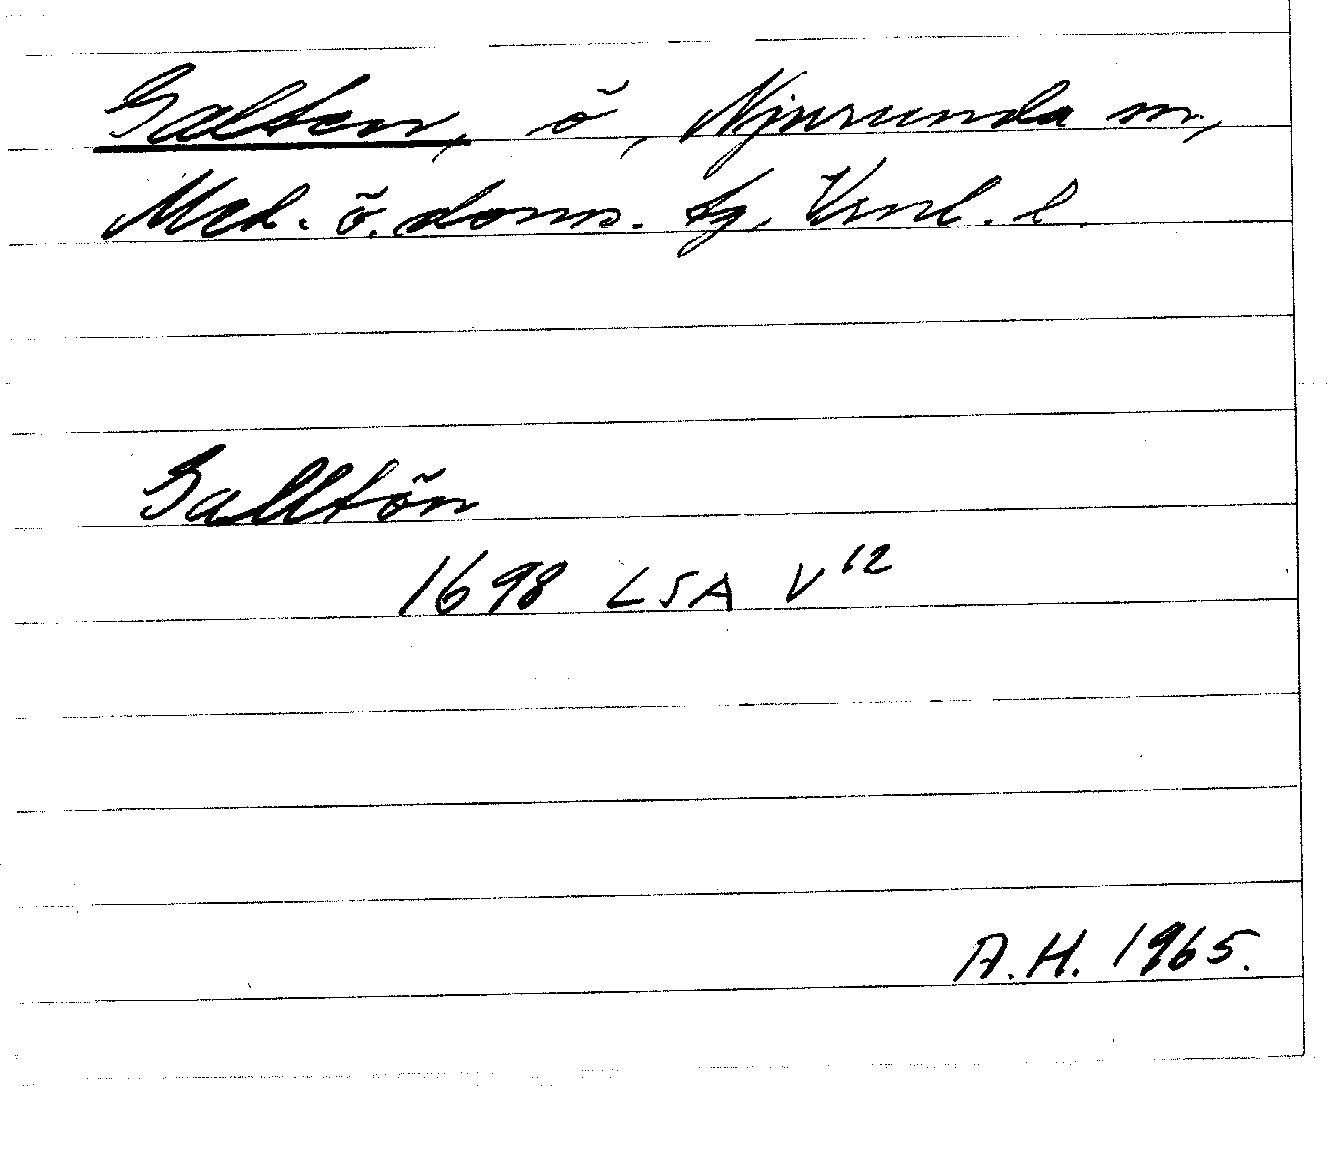 Galten, ö, Njurunda sn,
Med. ö. doms. tg, Vrnl. l.
Galltön
1698 LSA V 12
A.H. 1965.